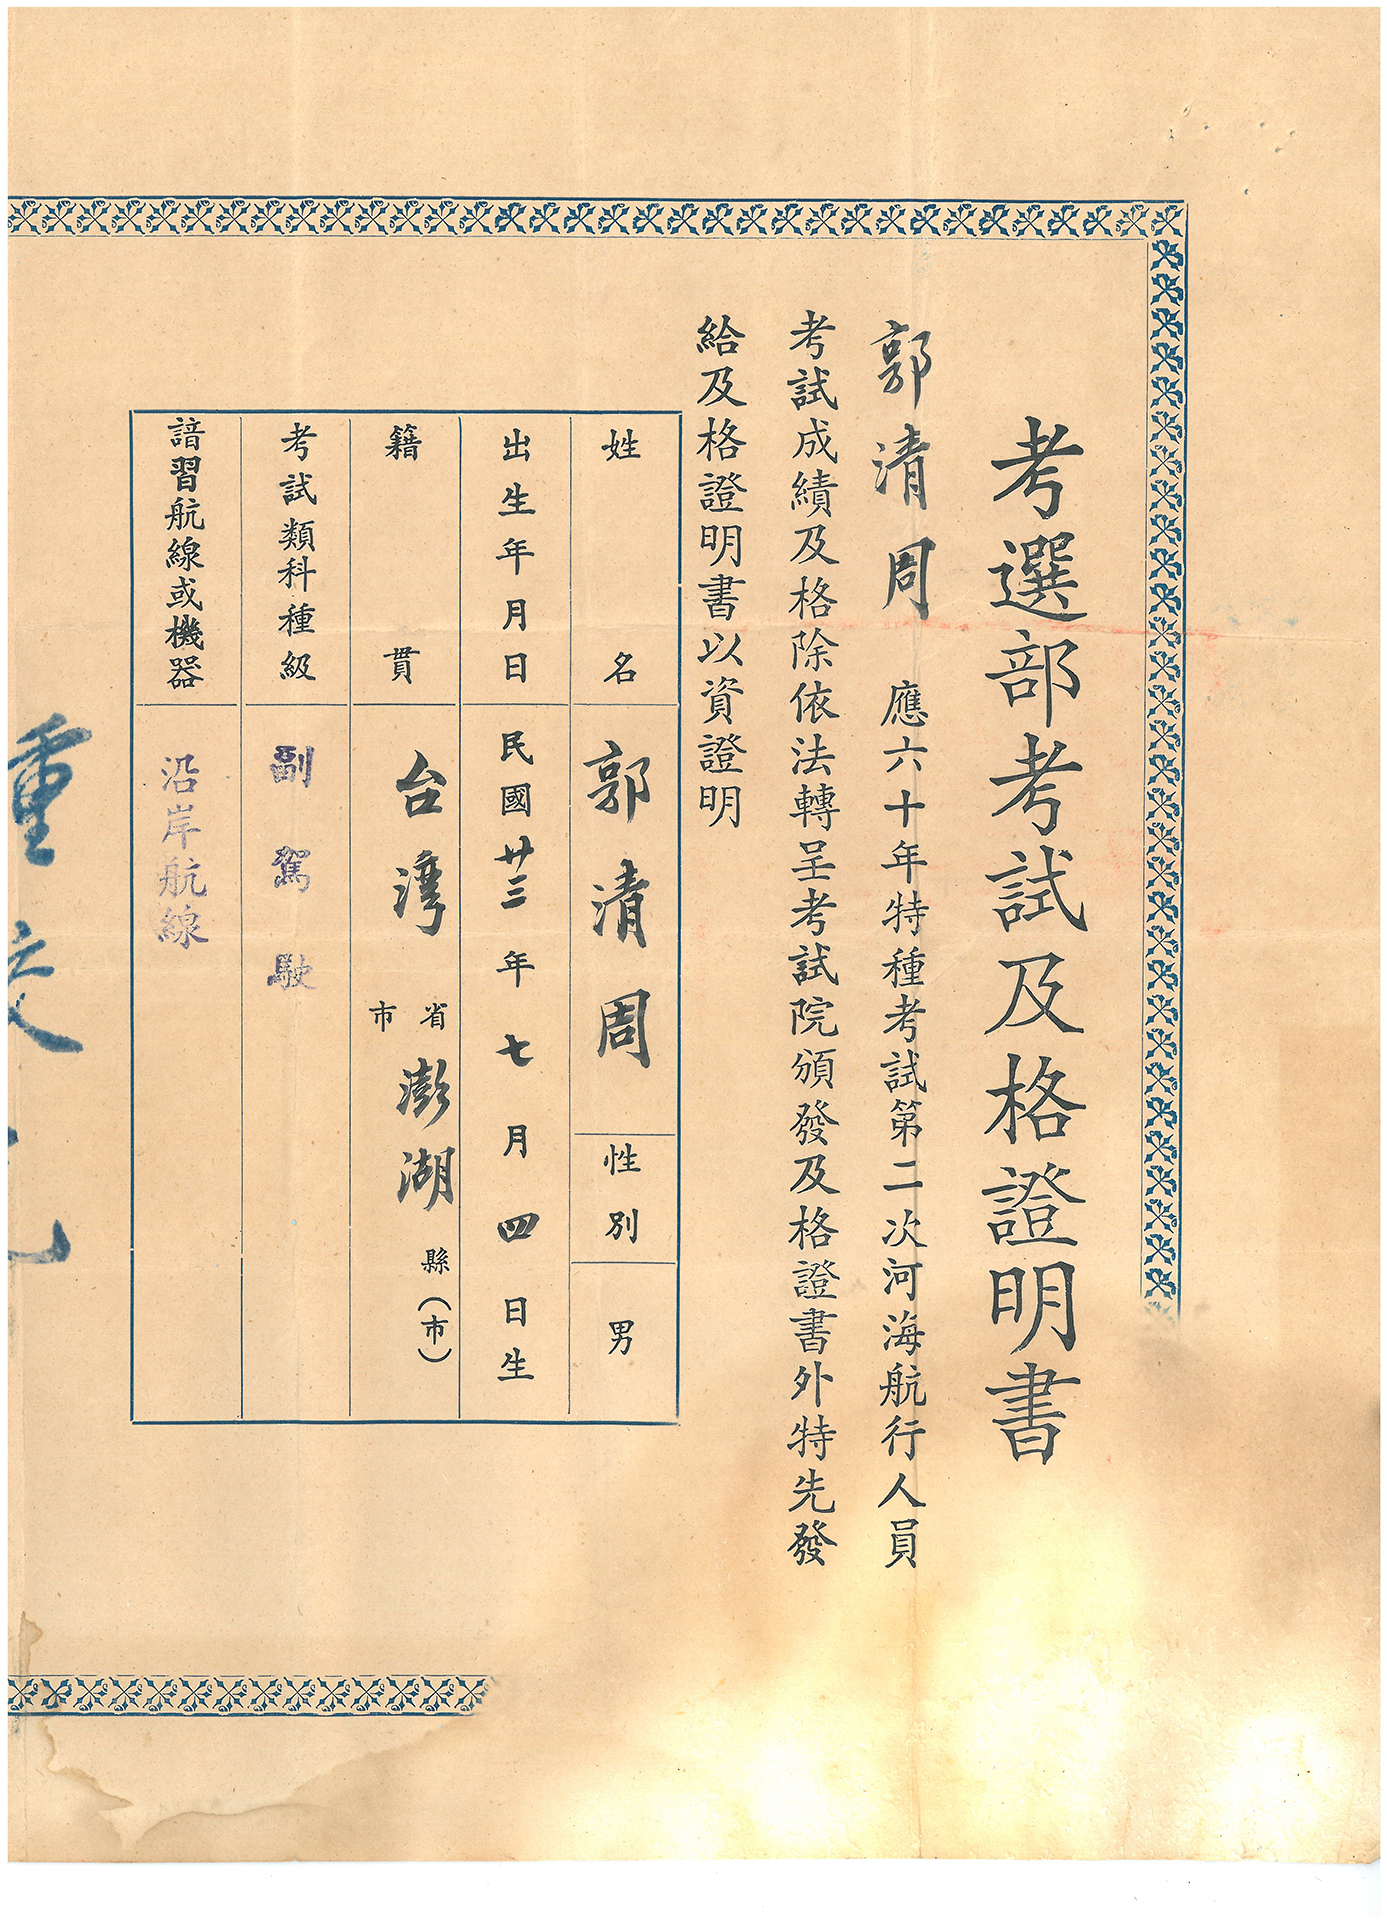 考選部考試及格證明書
郭清周 應六十年特種考試第二次河海航行人員
考試成績及格除依法轉呈考試院頒發及格證書外特先發
給及格證明書以資證明
姓名 郭清周 性別 男
出生年月日 民國廿三年七月四日生
籍貫 台灣省市澎湖縣(市)
考試類科種級 副駕駛
諳習航線或機器 沿岸航線